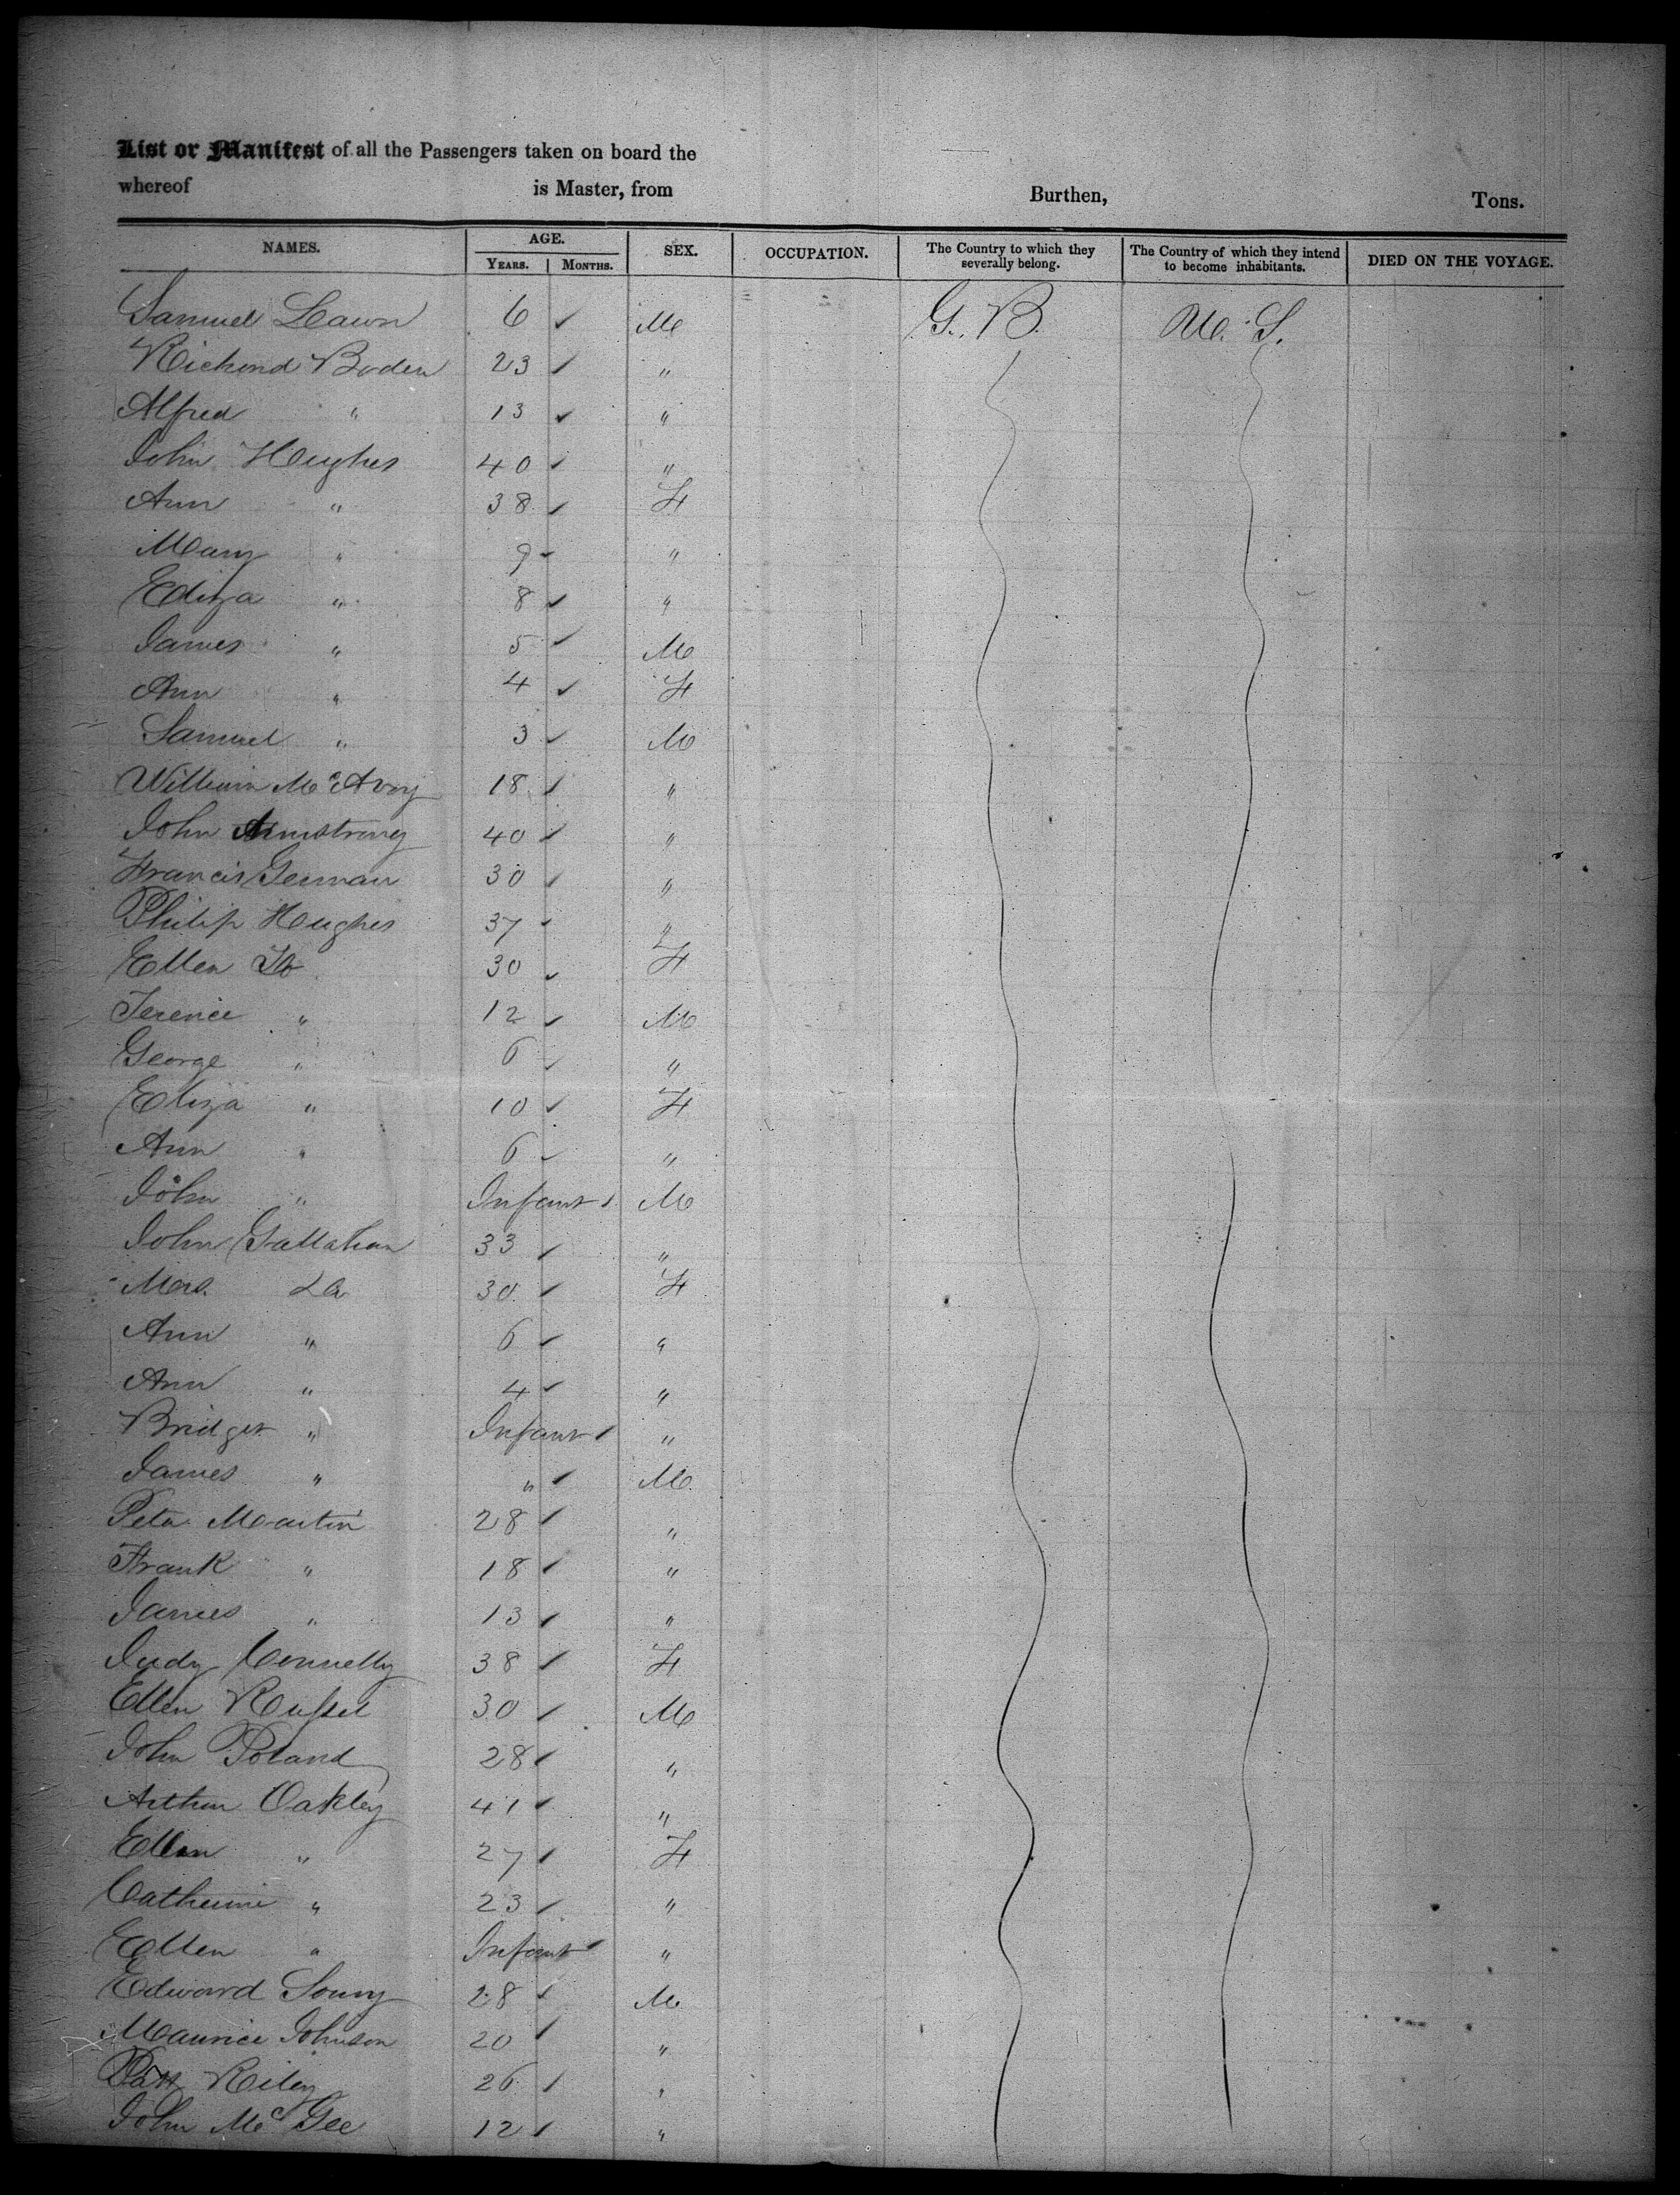 List or Manifest of all the Passengers taken on board the
whereof is Master, from Burthen, Tons.
NAMES. AGE. YEARS. MONTHS. SEX. OCCUPATION. The Country to which they severally belong. The Country of which they intend to become inhabitants. DIED ON THE VOYAGE.
Samuel Lawn 6 M G. B. U. S.
Richond Boden 23 "
Alfred " 13 "
John Hughes 40 "
Ann " 38 F
Mary " 9 "
Eliza " 8 "
James " 5 M
Ann " 4 F
Samuel " 3 M
William McAvoy 18 "
John Armstrong 40 "
Francis 30 "
Philip Hughes 37 "
Ellen Do 30 F
Terence " 12 M
George " 6 "
Eliza " 10 F
Ann " 6 "
John " Infant M
John Gallahan 33 "
Mrs. Do 30 F
Ann " 6 "
Ann " 4 "
Bridget " Infant "
James " " M
Peter Martin 28 "
Frank " 18 "
James " 13 "
Judy Connelly 38 F
Ellen Russel 30 M
John Poland 28 "
Arthur Oakley 41 "
Ellen " 27 F
Catherine " 23 "
Ellen " Infant "
Edward 28 M
Maurice Johnson 20 "
Patt Riley 26 "
John McGee 12 "